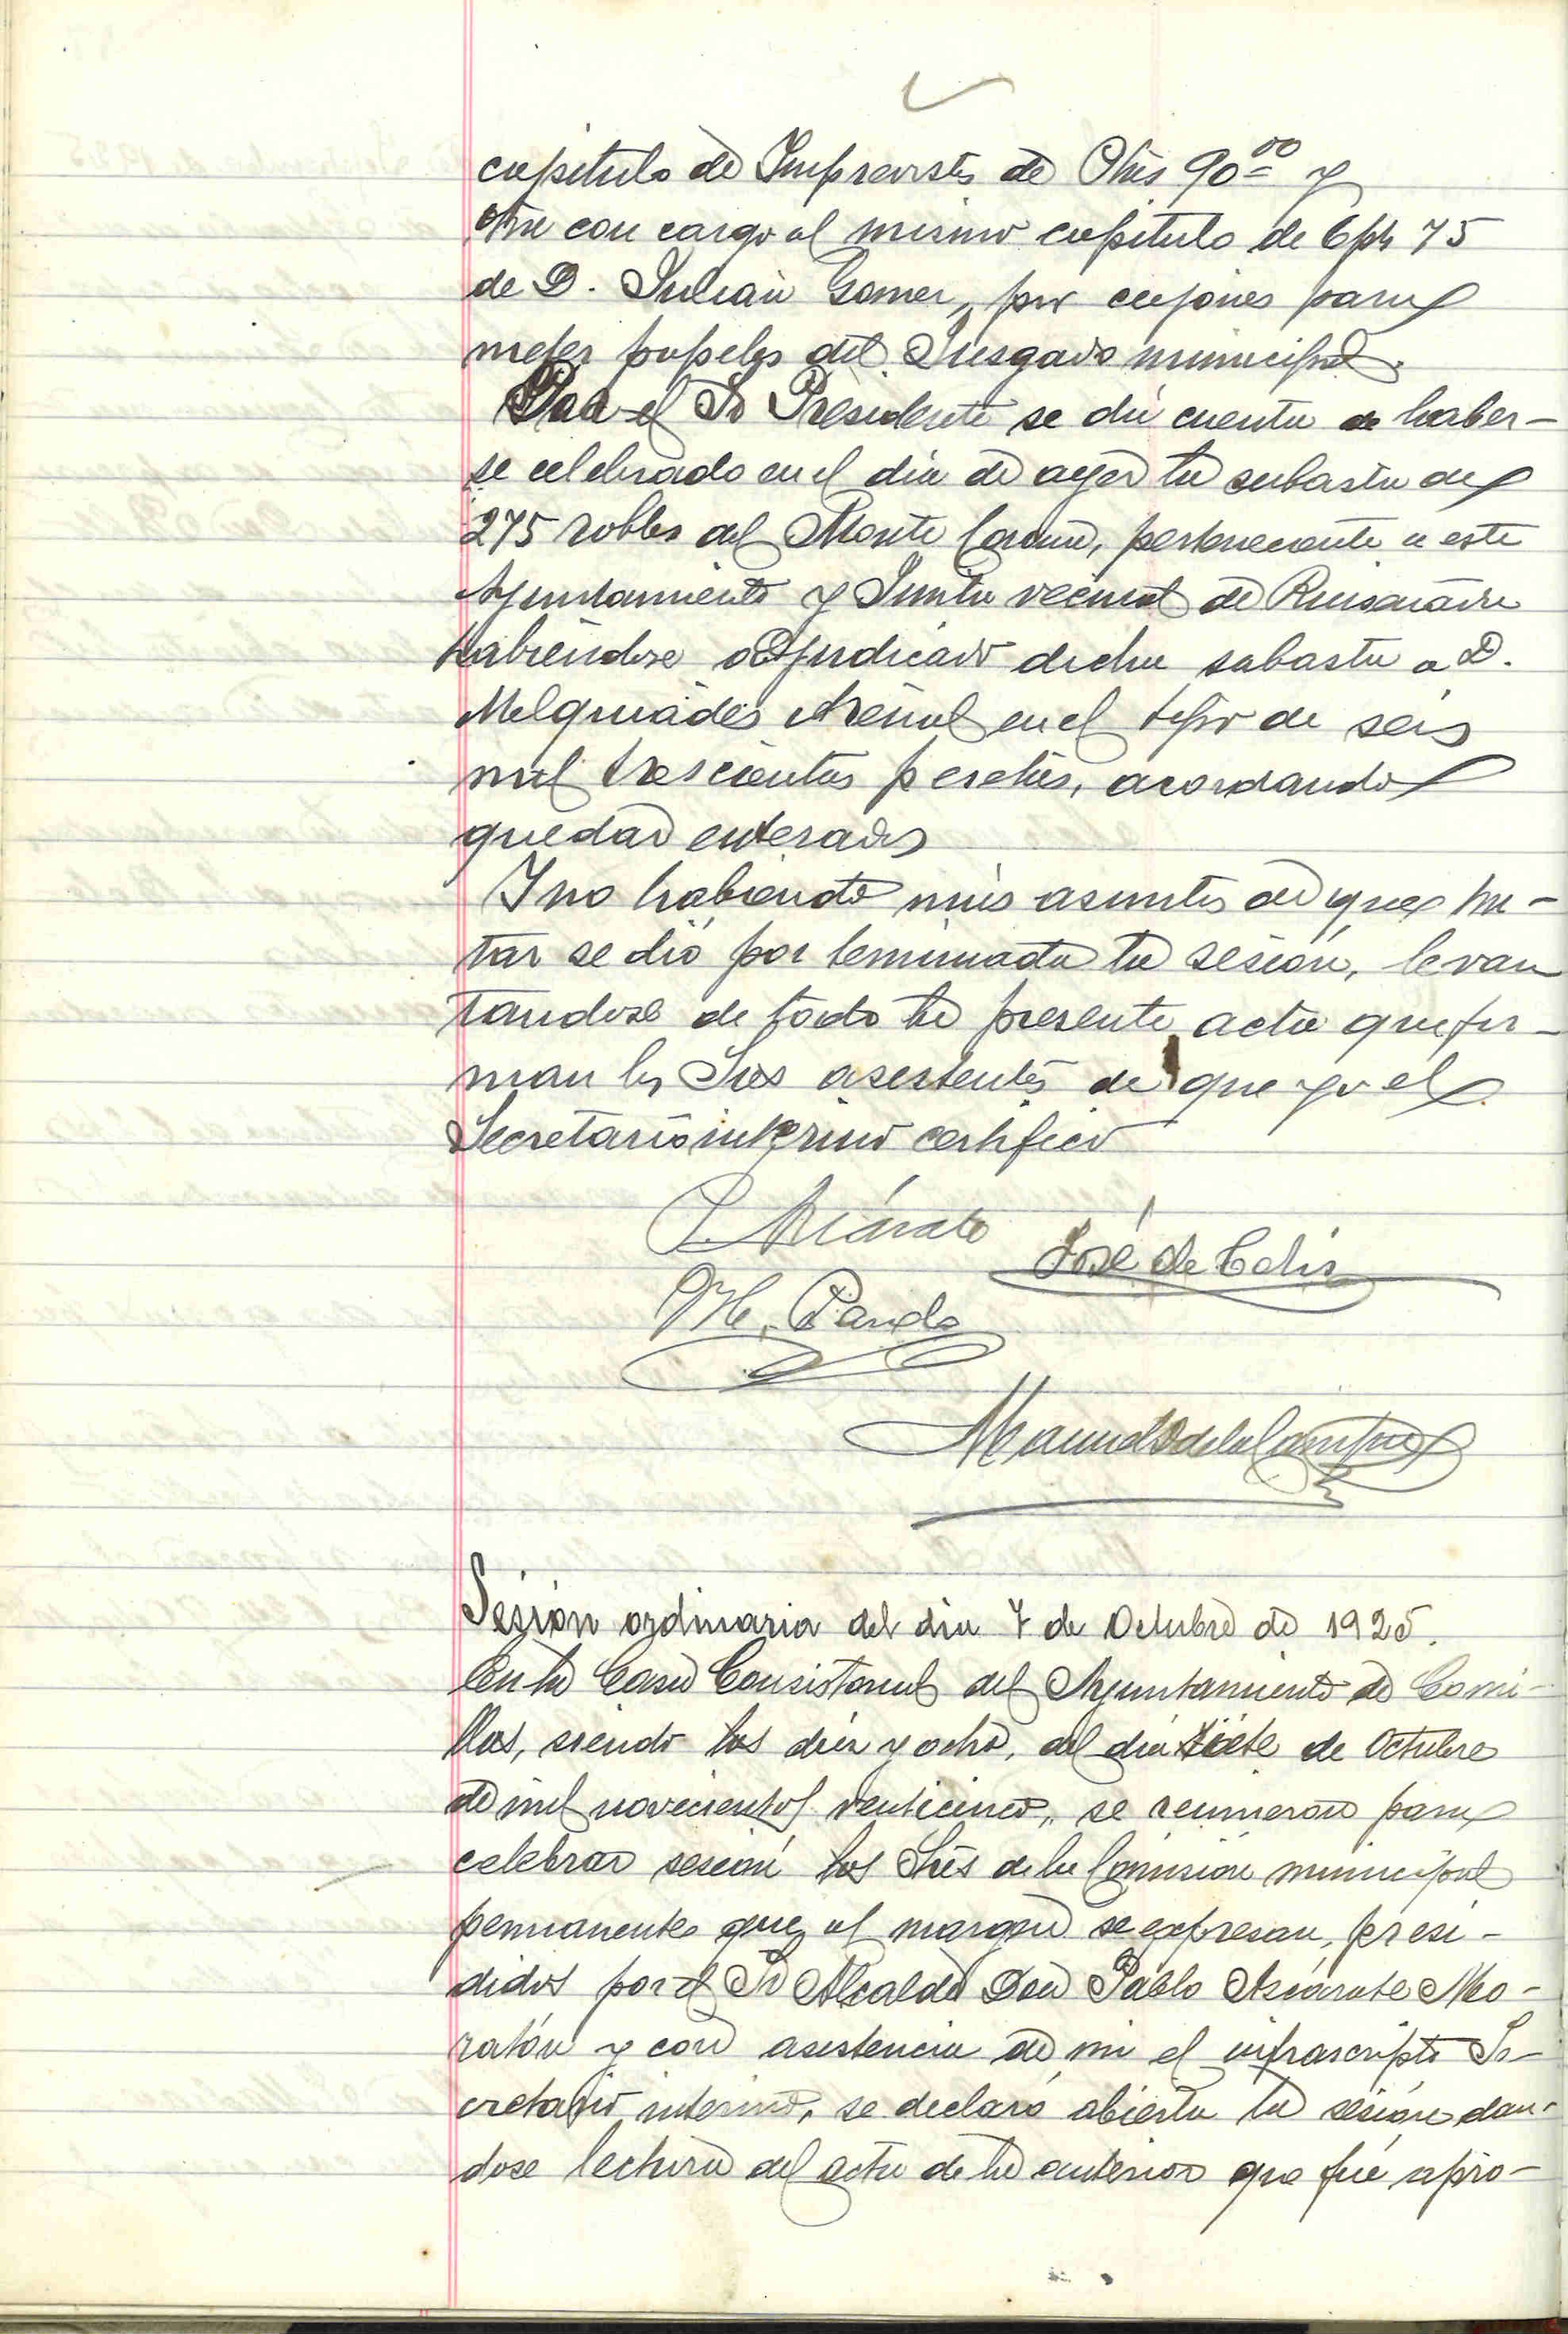 capitulo de Imprevistos de Ptas 90 00 y
otra con cargo al mismo capitulo de 6 pts 75
de D. Julian Gomez, por cajones para
meter papeles del Juzgado municipal.
Por el Sr Presidente se dió cuenta de haber-
se celebrado en el dia de ayer la subasta de
275 robles del Monte Corona, perteneciente a este
Ayuntamiento y Junta vecinal de Ruiseñada
habiéndose adjudicado dicha subasta a D.
Melquiades Arenal en el tipo de seis
mil trescientas pesetas, acordando
quedar enterados
Y no habiendo más asuntos de que tra-
tar se dió por terminada la sesión, levan
tandose de todo la presente acta que fir-
man los Sres asistentes de que yo el
Secretario interino certifico
P. Azcárate José de Celis
M. Pando
Manuel de la Campa
Sesión ordinaria del dia 7 de Octubre de 1925.
En la Casa Consistorial del Ayuntamiento de Comi-
llas, siendo las diez y ocho, del dia siete de Octubre
de mil novecientos venticinco, se reunieron para
celebrar sesión los Sres de la Comisión municipal
permanente que al margen se expresan, presi-
didos por el Sr Alcalde Don Pablo Azcárate Mo-
ratón y con asistencia de mi el infrascripto Se-
cretario interino, se declaró abierta la sesión dan-
dose lectura del acta de la anterior que fué apro-